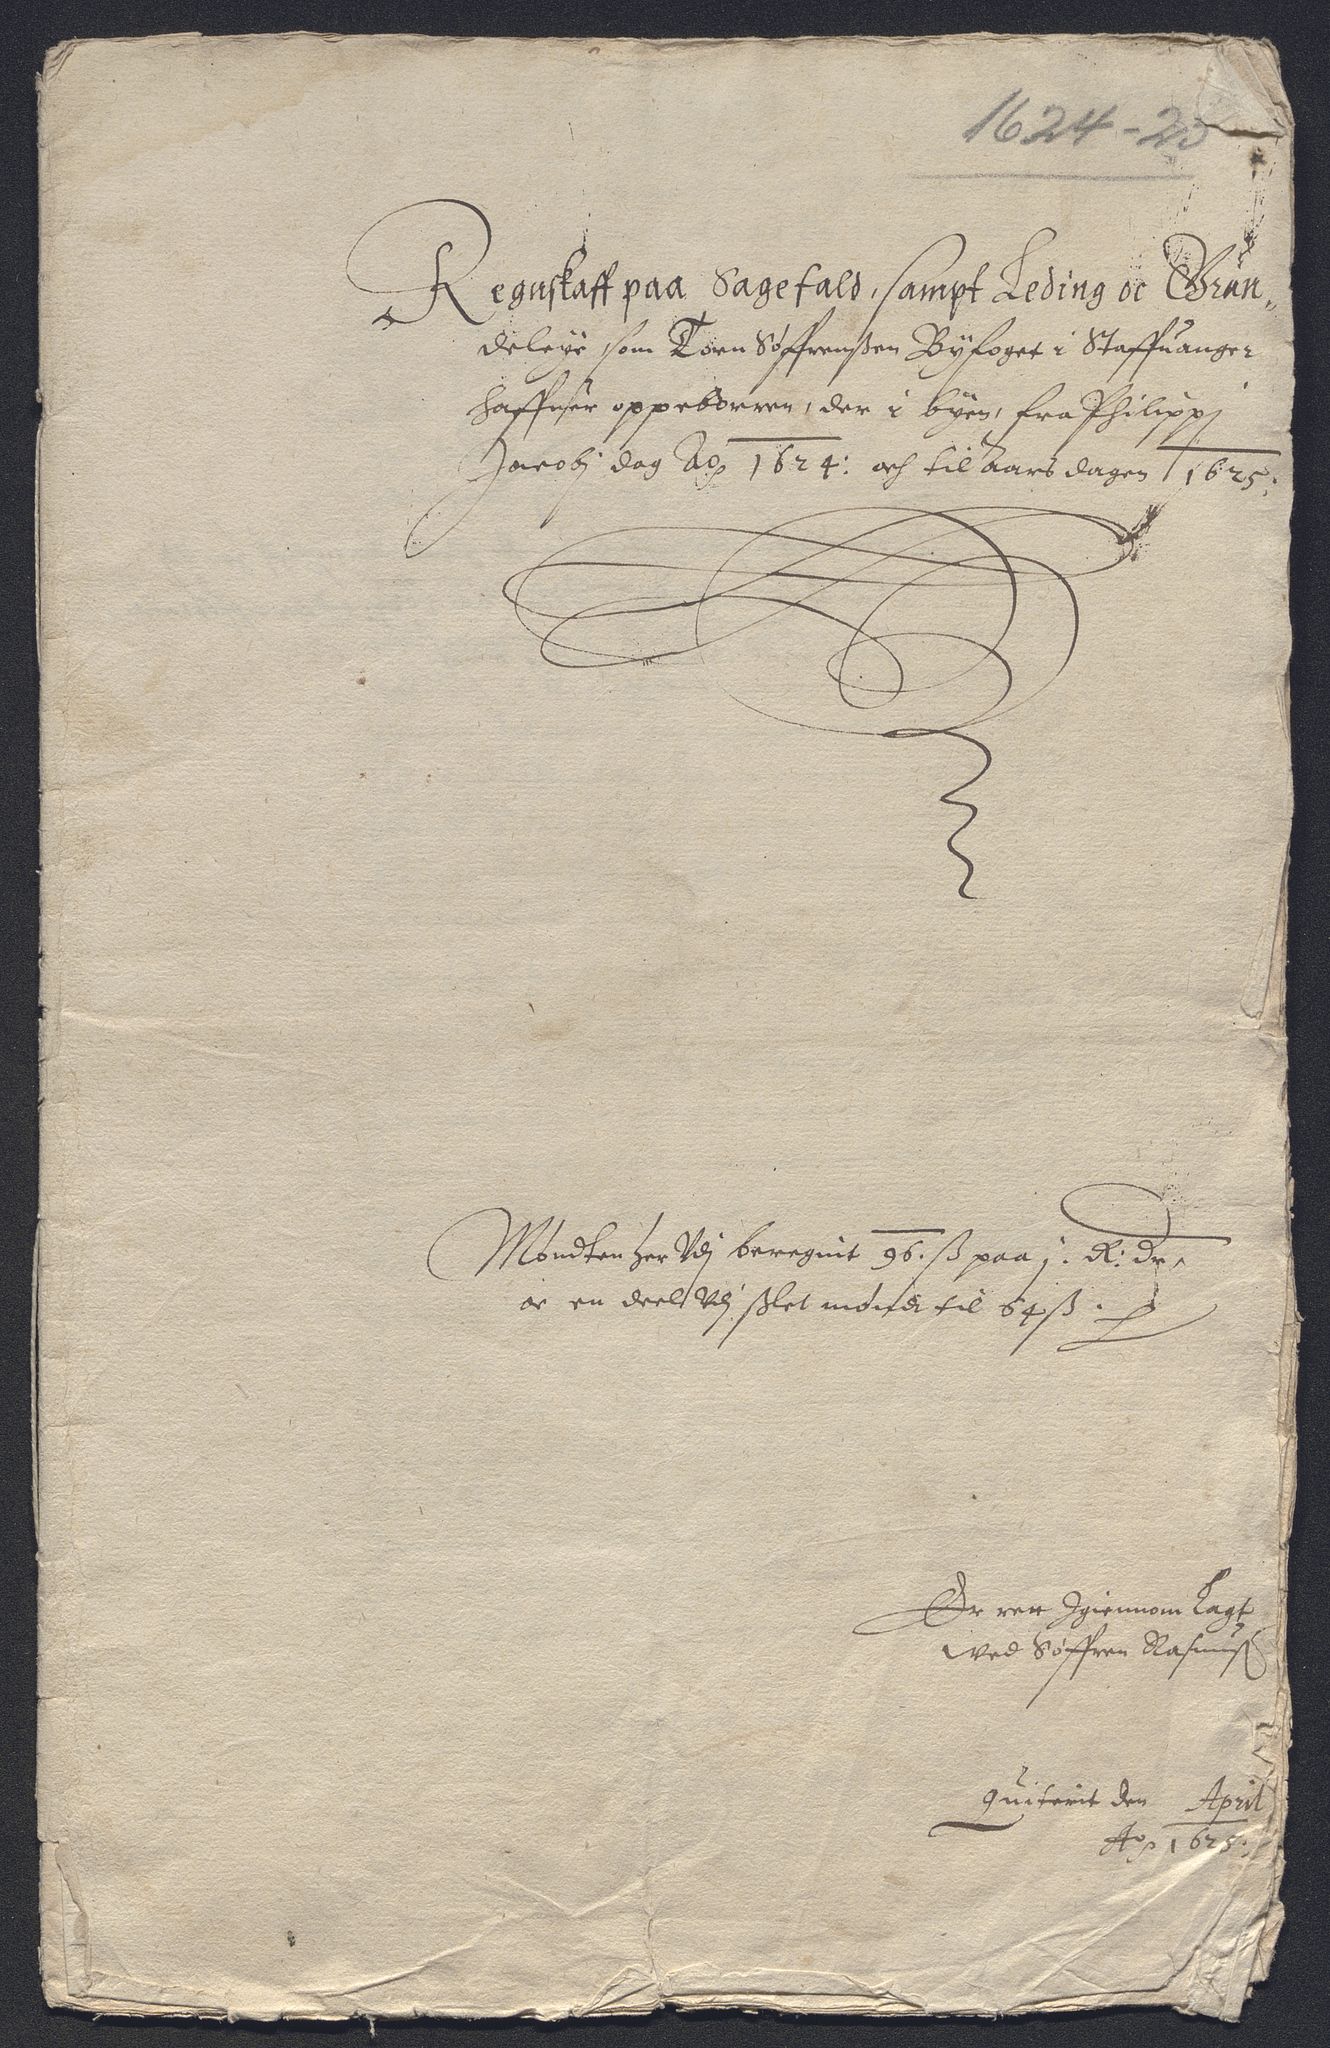 1624-25
Regnskaff paa Sagefald, sampt Leding oc Grun„
deleye som Torn Søffrenßen Byfoget i Staffuanger
haffuer oppebørren, der i byen, fra Philippj
Jacobj dag Ao 1624: och til aarsdagen 1625:
Møndten her Vdj beregnit 96. ß paa j. R: dr,
oc en deel Vdj ßlet mønt til 64 ß.
Er rett Igiennom Lagt
wed Søffren Rasmuß
Quiterit den April
Ao 1625: